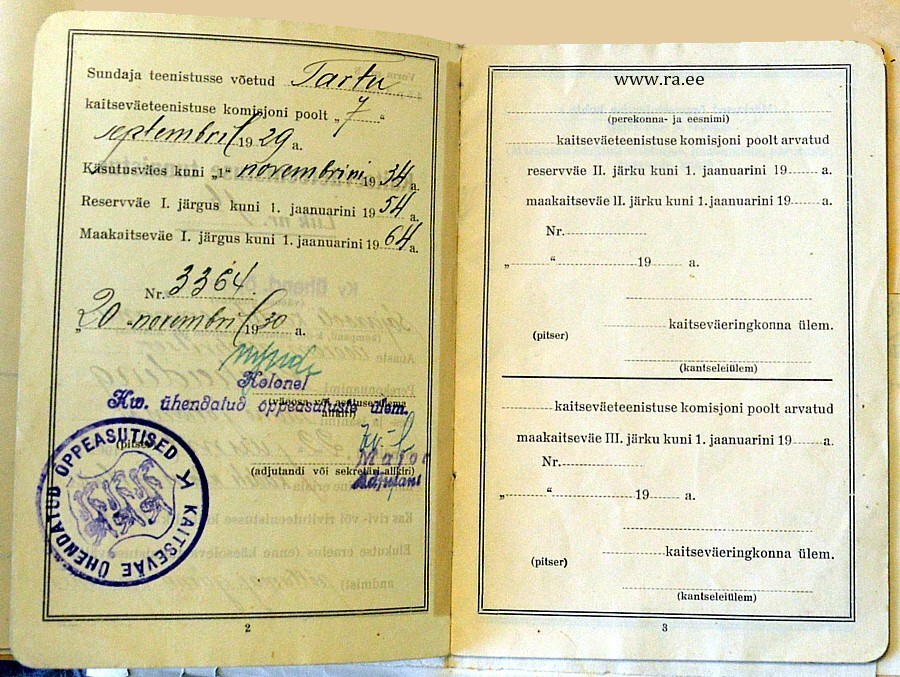 Sundaja teenistusse võetud Tartu
kaitseväeteenistuse komisjoni poolt „ 7 “
septembril 1929 a.
Kasutusväes kuni „1“ novembrini 1934 a.
Reservväe I. järgus kuni 1. jaanuarini 1954 a.
Maakaitseväe I. järgus kuni 1. jaanuarini 1964 a.
Nr. 3364.
„20 “ novembril 1930 a.
Kolonel
Kw. ühendatud õppeasutuste ülem.
(väeosa või asutuse ülema
allkiri)
(pitser)
Major
(adjutandi või sekretäri allkiri)
Adjutant
KAITSEVÄE ÜHENDATUD ÕPPEASUTISED
2
www.ra.ee
(perekonna- ja eesnimi)
kaitseväeteenistuse komisjoni poolt arvatud
reservväe II. järku kuni 1. jaanuarini 19 a.
maakaitseväe II. järku kuni 1. jaanuarini 19 a.
Nr.
„ “ 19 a.
kaitseväeringkonna ülem.
(pitser)
(kantseleiülem)
kaitseväeteenistuse komisjoni poolt arvatud
maakaitseväe III. järku kuni 1. jaanuarini 19 a.
Nr.
„ “ 19 a.
kaitseväeringkonna ülem.
(pitser)
(kantseleiülem)
3